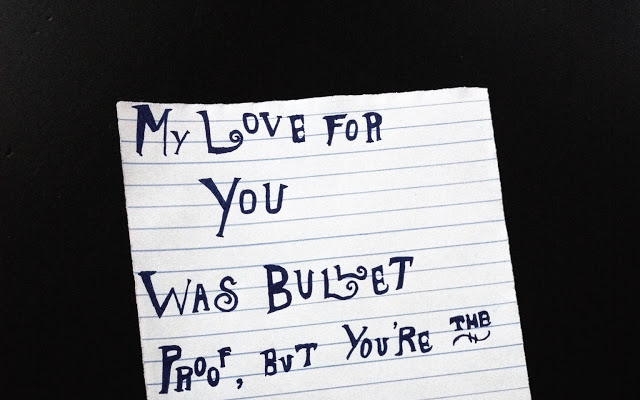 My Love for
You
Was Bullet
Proof, but You're the